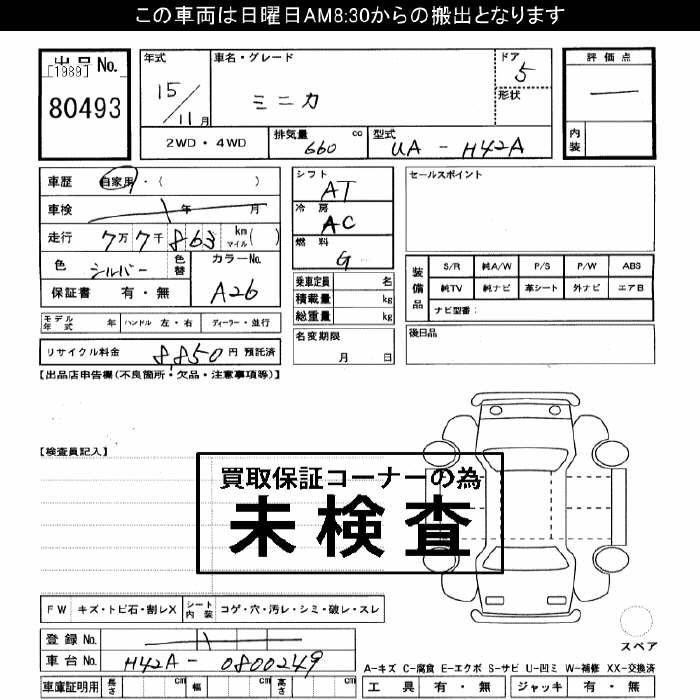 この車両は日曜日AM8:30からの搬出となります
出品 No.
[1989]
80493
年式
15/11月
車名・グレード
ミニカ
ドア
5
形状
評価点
—
内装
2WD・4WD
排気量 660 cc
型式 UA-H42A
車歴 自家用・( )
車検 年 月
走行 7万7千863 km マイル( )
色 シルバー 色替
カラーNo.
A26
保証書 有・無
モデル年式 年 ハンドル 左・右 ディーラー・並行
リサイクル料金 8,850円 預託済
シフト
AT
冷房
AC
燃料
G
乗車定員 名
積載量 kg
総重量 kg
名変期限
月 日
セールスポイント
装備品
S/R 純A/W P/S P/W ABS
純TV 純ナビ 革シート 外ナビ エアB
ナビ型番:
後日品
【出品店申告欄(不良箇所・欠品・注意事項等)】
【検査員記入】
買取保証コーナーの為
未検査
FW キズ・トビ石・割レX シート内装 コゲ・穴・汚レ・シミ・破レ・スレ
登録 No.
車台 No. H42A-0800249
車庫証明用 長さ cm 幅 cm 高さ cm
スペア
A-キズ C-腐食 E-エクボ S-サビ U-凹ミ W-補修 XX-交換済
工具 有・無 ジャッキ 有・無